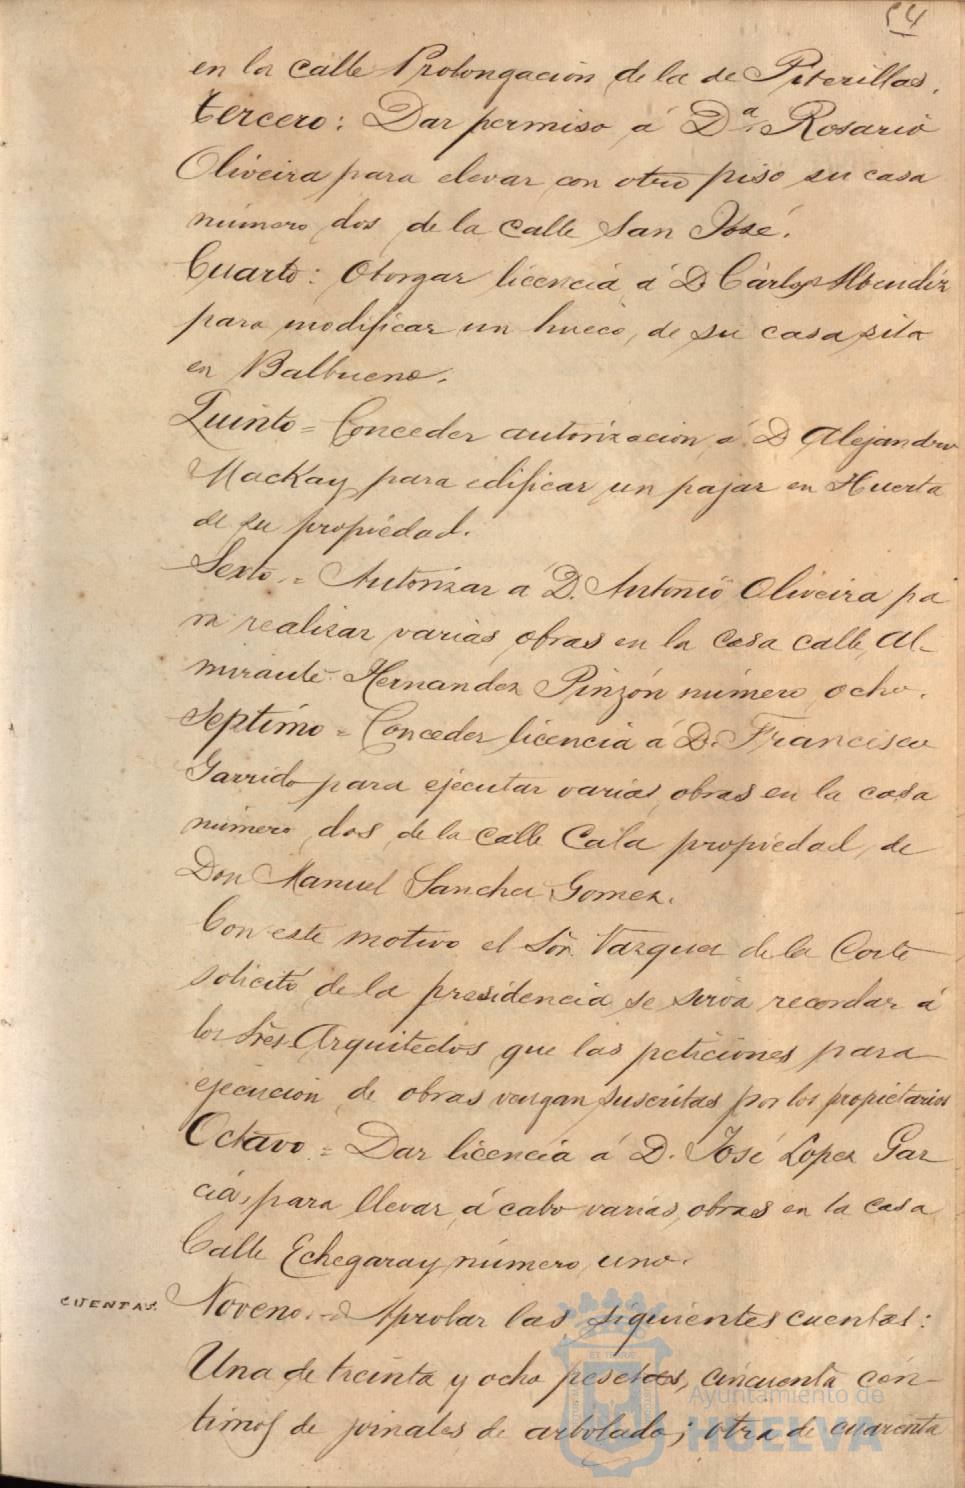 54
en la calle Prolongación de la de Puterillas.
tercero: Dar permiso á Dª Rosario
Oliveira para elevar con otro piso su casa
número dos de la calle San José.
Cuarto: Otorgar licencia á D. Cárlos
para modificar un hueco, de su casa sita
en Balbuena.
Quinto = Conceder autorizacion á D Alejandro
MacKay para edificar un pajar en Huerta
de su propiedad.
Sexto = Autorizar á D. Antonio Oliveira pa
ra realizar varias obras en la casa calle Al-
mirante Hernandez Pinzón número ocho.
Septimo = Conceder licencia á D. Francisco
Garrido para ejecutar varias obras en la casa
número dos de la calle Cala propiedad de
Don Manuel Sanchez Gomez.
Con este motivo el Sör. Vazquez de la Corte
solicitó de la presidencia se sirva recordar á
los Sres. Arquitectos que las peticiones para
ejecucion de obras vengan suscritas por los propietarios
Octavo = Dar licencia á D. José Lopez Gar
cia, para llevar á cabo varias obras en la casa
Calle Echegaray número uno.
CUENTAS. Noveno = Aprobar las siguientes cuentas:
Una de treinta y ocho pesetas, cincuenta cén-
timos de jornales de arbolado; otra de cuarenta
Ayuntamiento de
HUELVA